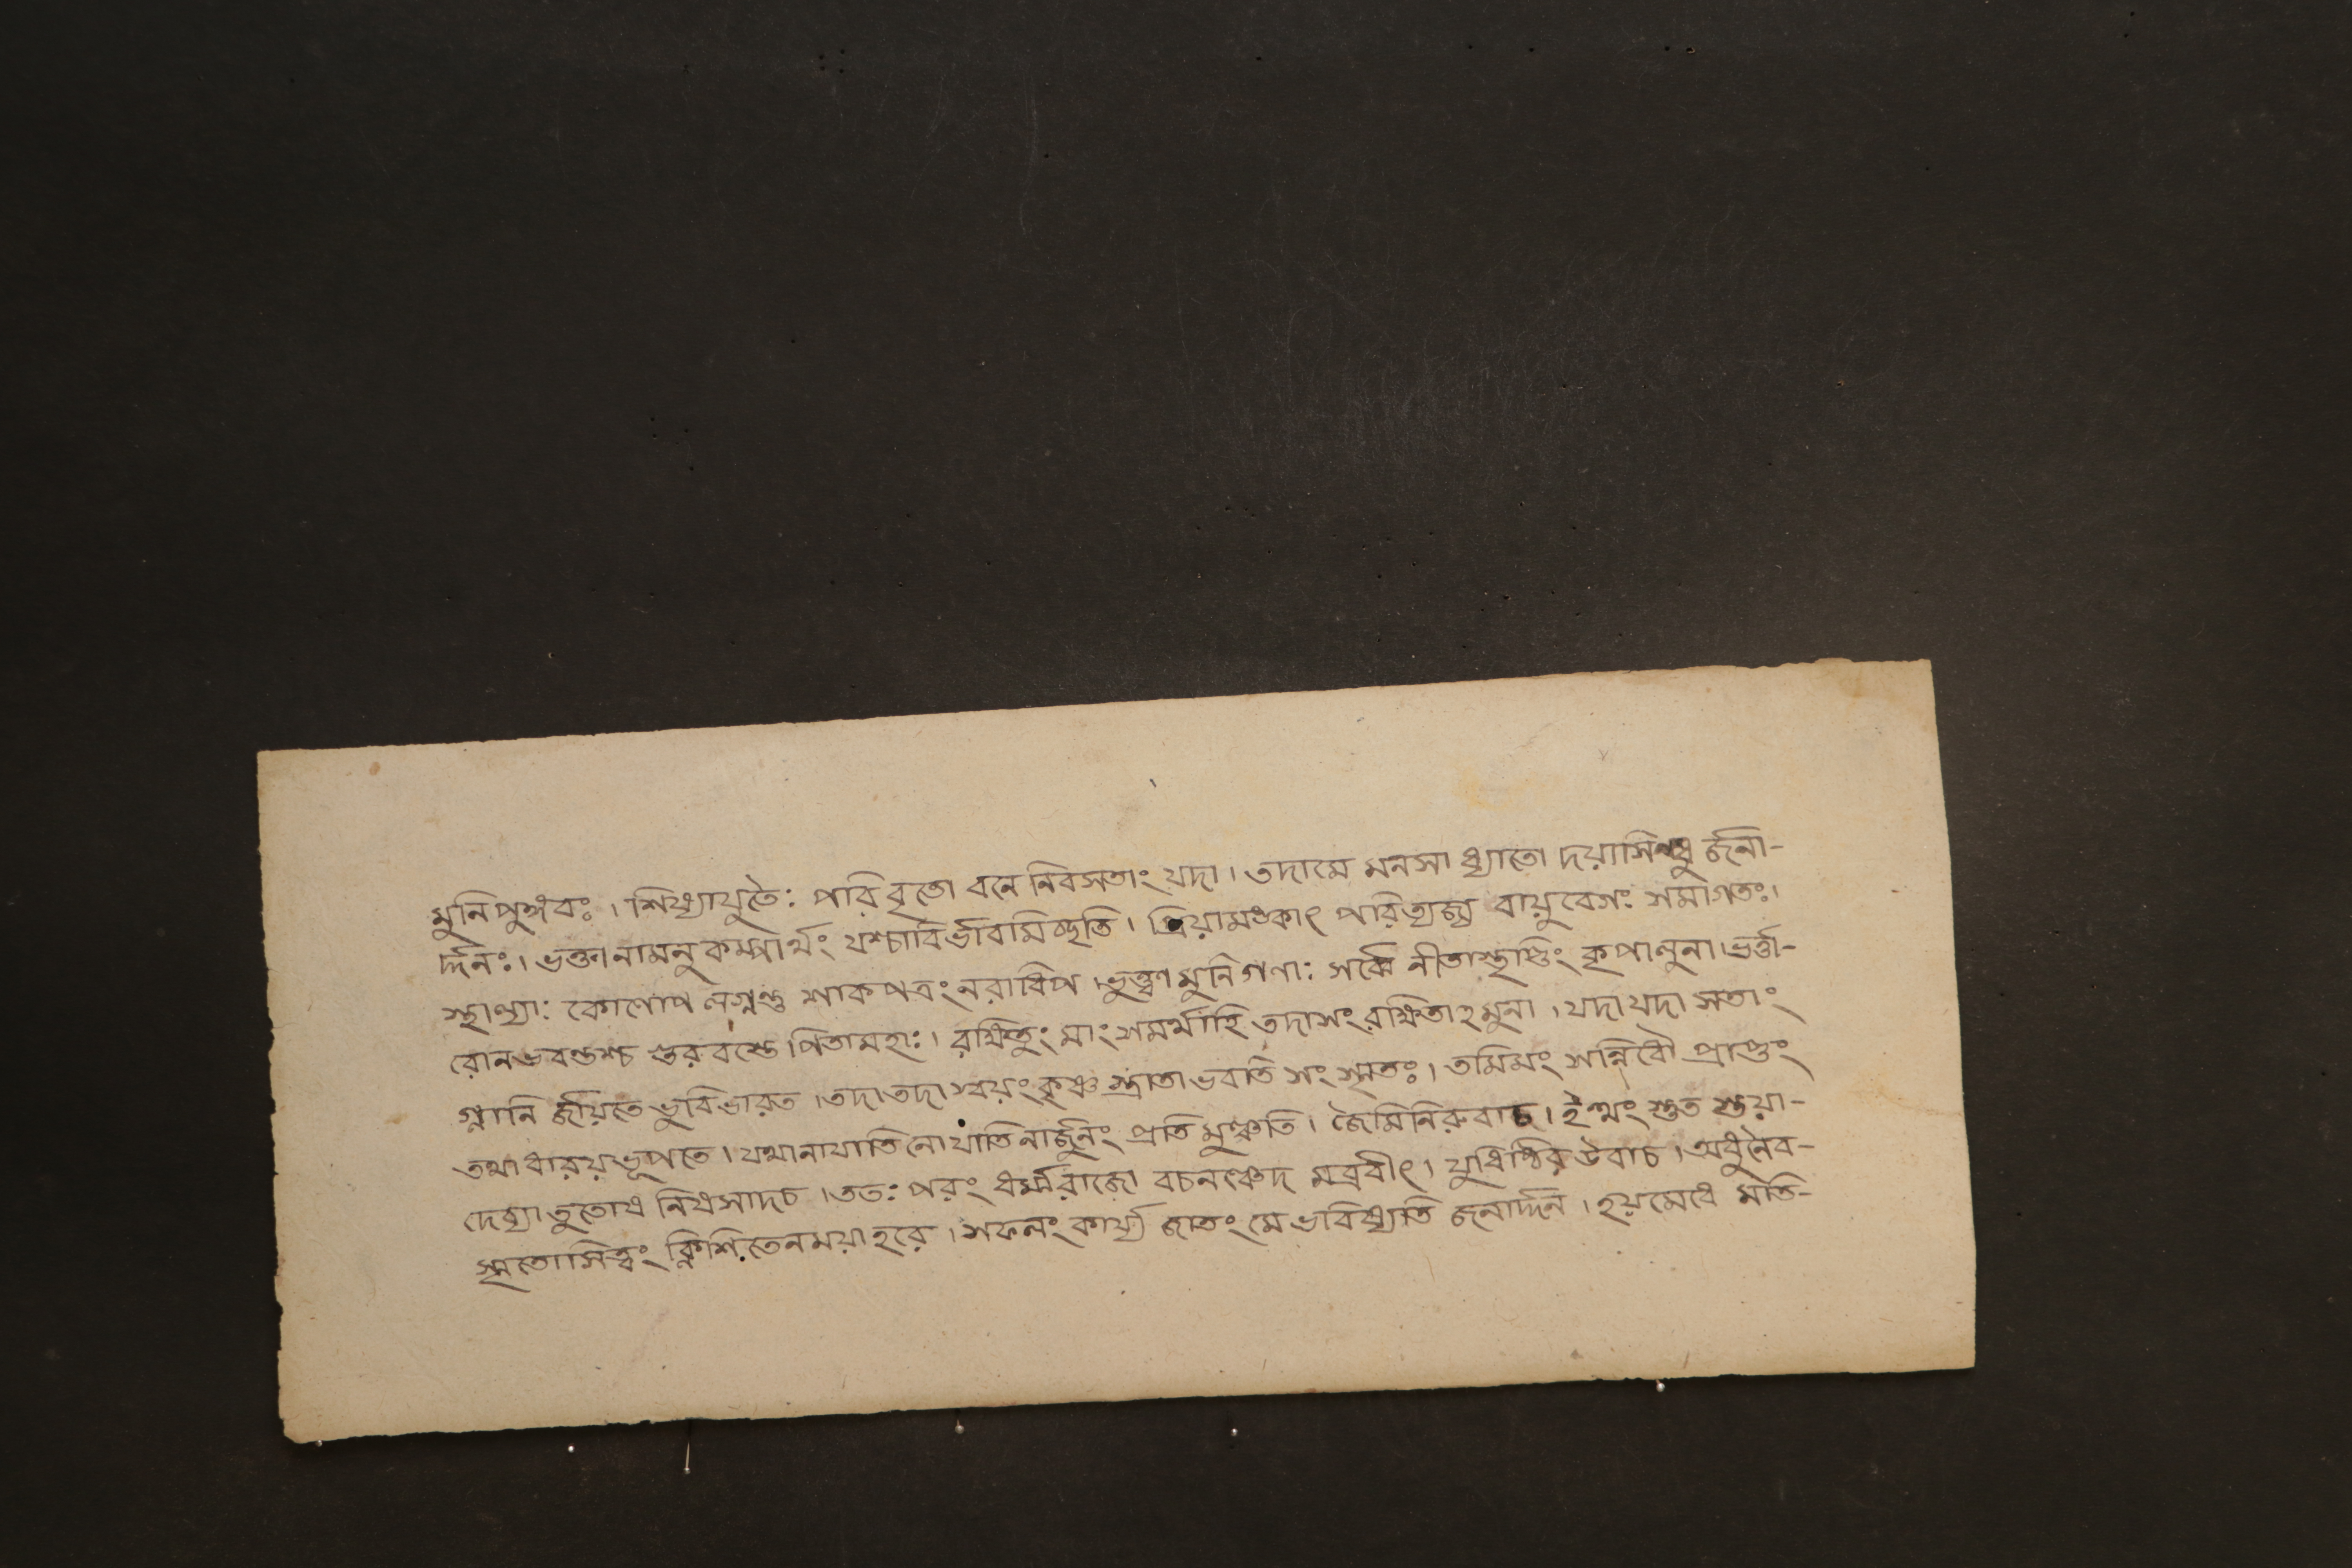 মুনিপুঙ্গবঃ । শিষ্যাযুতৈঃ পরিবৃতো বনে নিবসতাং যদা । তদামে মনসা ধ্যাতো দয়াসিন্ধু র্জনা-
র্দ্দনঃ । ভক্তানামনুকম্পার্থং যশ্চাবির্ভাবমিচ্ছতি । প্রিয়ামঙ্কাৎ পরিত্যজ্য বায়ুবেগঃ সমাগতঃ ।
স্থাল্যাঃ কোণোপ লগ্নন্তু শাকপত্রং নরাধিপ । ভুক্ত্বা মুনিগণাঃ সর্ব্বে নীতাস্তৃপ্তিং কৃপালুনা । ভর্ত্তা-
রোনভবন্তশ্চ শ্বশুর পিতামহাঃ । রক্ষিতুং মাং সমর্থাহি তদাসং রক্ষিতাহমুনা । যদা যদা সতাং
গ্লানি র্জায়তে ভুবিভারত । তদাতদা স্বয়ং কৃষ্ণ স্ত্রাতা ভবতি সংস্মৃতঃ । তমিমং সন্নিধৌ প্রাপ্তং
তথা ধারয় ভূপতে । যথানাযাতি নো যাতি নার্জুনং প্রতি মুঞ্চতি । জৈমিনিরুবাচ । ইত্থং শ্রুত স্তয়া-
দেব্যা তুতোষ নিষসাদচ । ততঃ পরং ধর্ম্মরাজো বচনঞ্চেদ মব্রবীৎ । যুধিষ্ঠির উবাচ । অধুনৈব-
স্মৃতোসিত্বং ক্লিশিতেনময়াহরে । সফলং কার্য্য জাতং মে ভবিষ্যতি জনার্দ্দন । হয়মেধে মতি-